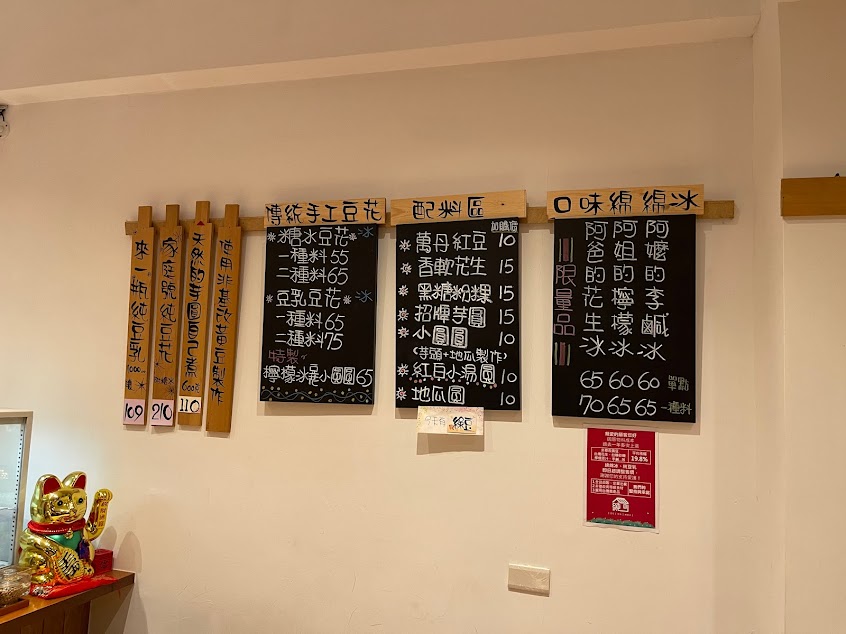 來一瓶純豆乳
1000cc
109
家庭號純豆花
210
天然的芋圓自己煮
600g
110
使用非基改黃豆製作
傳統手工豆花
糖水豆花 冰
一種料 55
二種料 65
豆乳豆花 冰
一種料 65
二種料 75
特製
檸檬冰是小圓圓 65
配料區
加購價
萬丹紅豆 10
香軟花生 15
黑糖粉粿 15
招牌芋圓 15
小圓圓 10
(芋頭+地瓜製作)
紅豆小湯圓 10
地瓜圓 10
綠豆
口味綿綿冰
阿嬤的李鹹冰
阿姐的檸檬冰
阿爸的花生冰
限量品
65 60 60 單點
70 65 65 一種料
19.8%